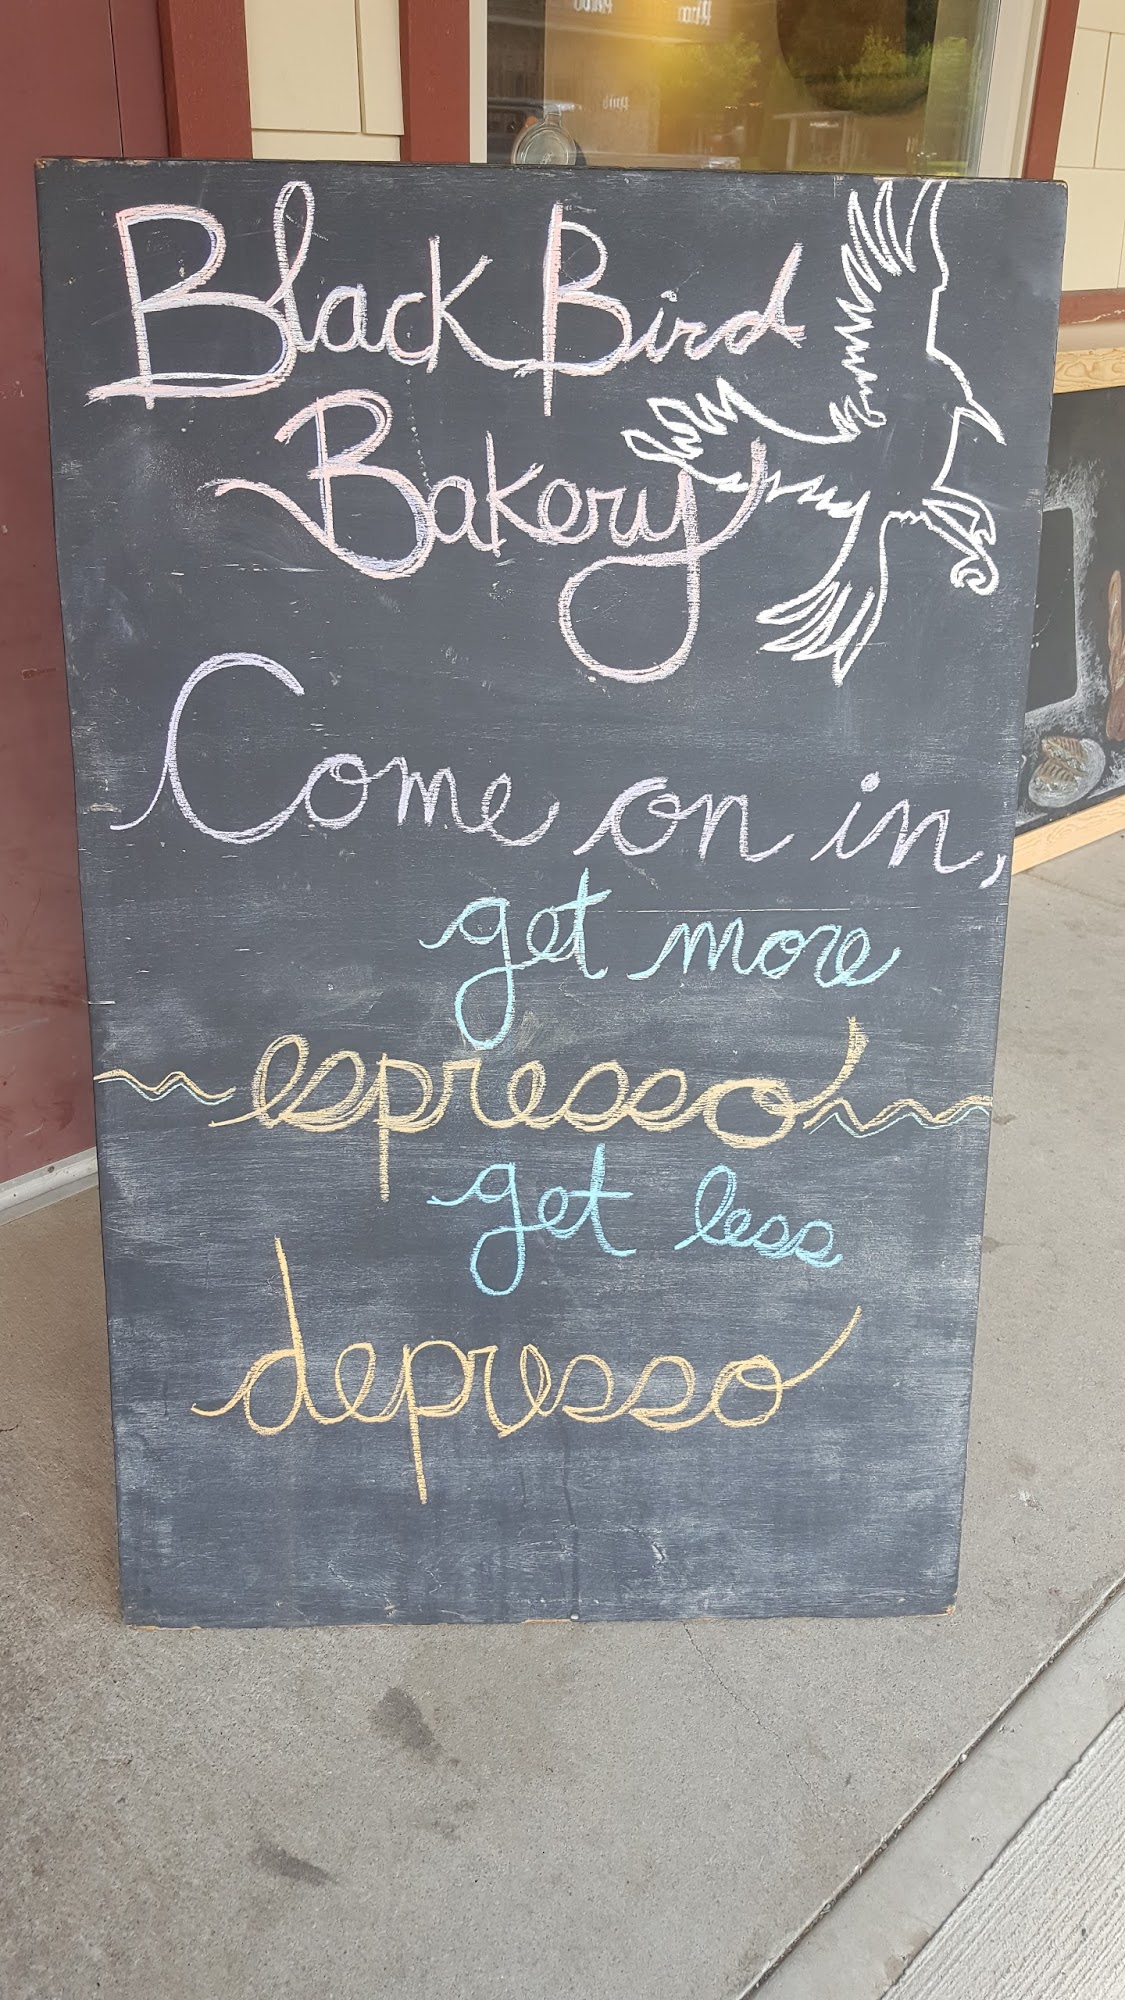 Black Bird
Bakery
Come on in,
get more
espresso
get less
depresso